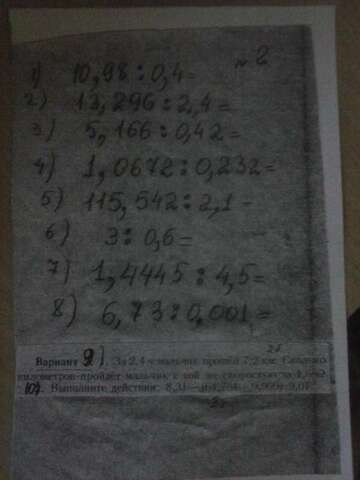 № 2
1) 10,98 : 0,4 =
2) 13,296 : 2,4 =
3) 5,166 : 0,42 =
4) 1,0672 : 0,232 =
5) 115,542 : 2,1 =
6) 3 : 0,6 =
7) 1,4445 : 4,5 =
8) 6,73 : 0,001 =
Вариант 9). За 2,4 ч мальчик прошел 7,2 км. Сколько
километров пройдёт мальчик с той же скоростью за
10). Выполните действия: 8,31 –